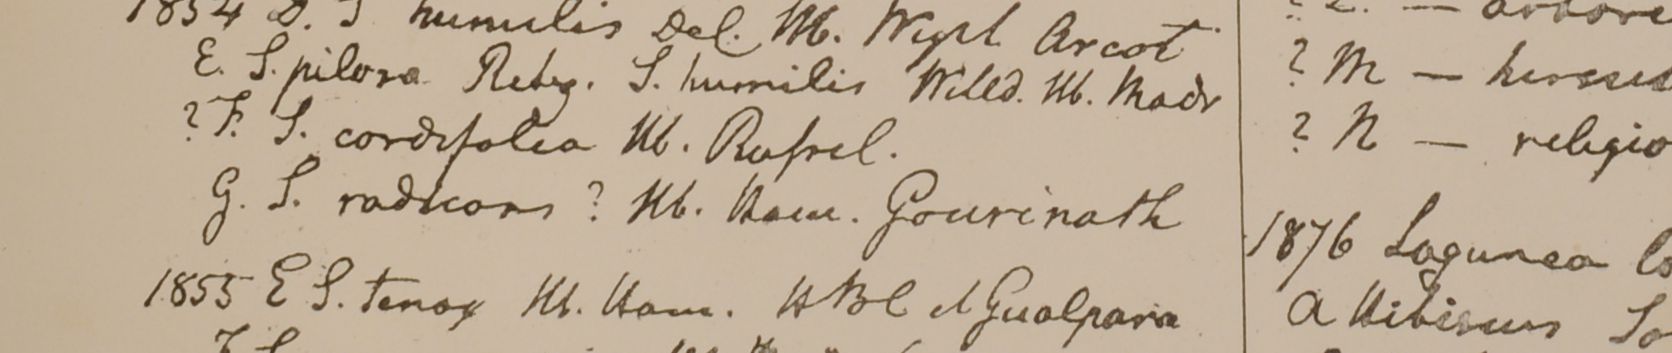 1854 D. S humilis Del. Hb. Wight Arcot
E. S. pilosa Retz. S. humilis Willd. Hb. Madr
? F. S. cordifolia Hb. Russel.
G. S. radicans ? Hb. Ham. Gourinath
1855 E S. tenax Hb. Ham. HBC et Gualpara
F S.
? M — hirsut
? N — religio
1876 Lagunea
A Hibiscus